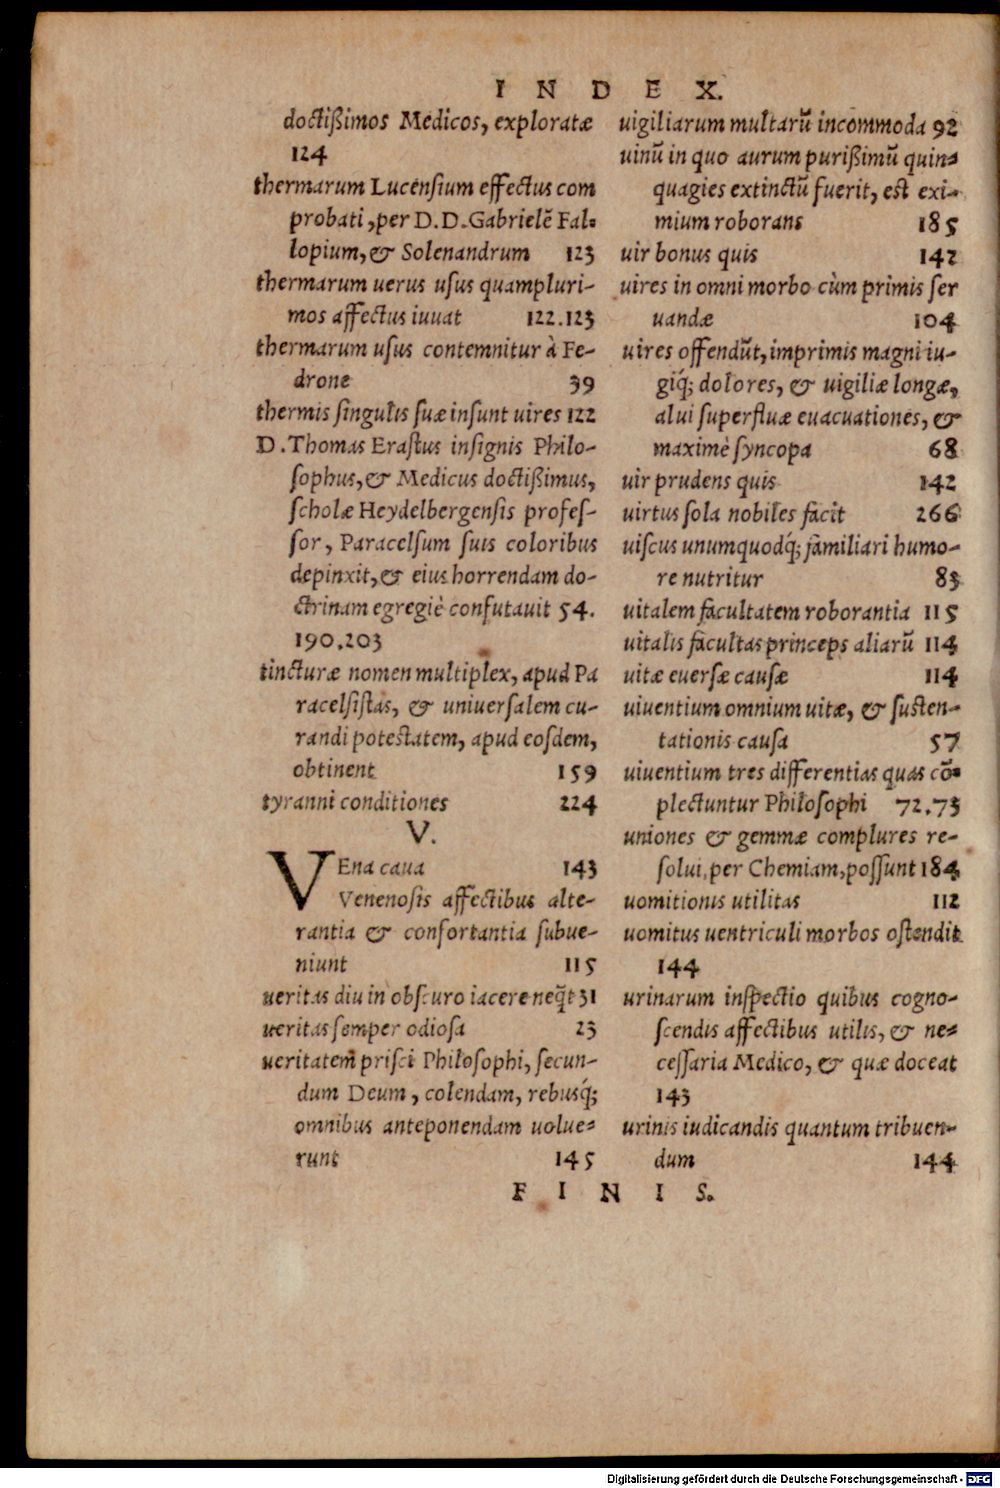 INDEX.
doctißimos Medicos, exploratæ
124
thermarum Lucensium effectus com
probati, per D.D. Gabrielē Fal-
lopium, & Solenandrum 123
thermarum uerus usus quampluri-
mos affectus iuuat 122.123
thermarum usus contemnitur à Fe-
drone 39
thermis singulis suæ insunt uires 122
D. Thomas Erastus insignis Philo-
sophus, & Medicus doctißimus,
scholæ Heydelbergensis profes-
sor, Paracelsum suis coloribus
depinxit, & eius horrendam do-
ctrinam egregiè confutauit 54.
190.203
tincturæ nomen multiplex, apud Pa
racelsistas, & uniuersalem cu-
randi potestatem, apud eosdem,
obtinent 159
tyranni conditiones 224
V.
VEna caua 143
Venenosis affectibus alte-
rantia & confortantia subue-
niunt 115
ueritas diu in obscuro iacere neq̃t 31
ueritas semper odiosa 23
ueritatem prisci Philosophi, secun-
dum Deum, colendam, rebusq́;
omnibus anteponendam uolue-
runt 145
uigiliarum multarū incommoda 92
uinū in quo aurum purißimū quin-
quagies extinctū fuerit, est exi-
mium roborans 185
uir bonus quis 142
uires in omni morbo cùm primis ser
uandæ 104
uires offendūt, imprimis magni iu-
giq́; dolores, & uigiliæ longæ,
alui superfluæ euacuationes, &
maximè syncopa 68
uir prudens quis 142
uirtus sola nobiles facit 266
uiscus unumquodq́; familiari humo-
re nutritur 83
uitalem facultatem roborantia 115
uitalis facultas princeps aliarū 114
uitæ euersæ causæ 114
uiuentium omnium uitæ, & susten-
tationis causa 57
uiuentium tres differentias quas cō-
plectuntur Philosophi 72.73
uniones & gemmæ complures re-
solui, per Chemiam, possunt 184
uomitionis utilitas 112
uomitus uentriculi morbos ostendit
144
urinarum inspectio quibus cogno-
scendis affectibus utilis, & ne-
cessaria Medico, & quæ doceat
143
urinis iudicandis quantum tribuen-
dum 144
FINIS.
Digitalisierung gefördert durch die Deutsche Forschungsgemeinschaft - DFG